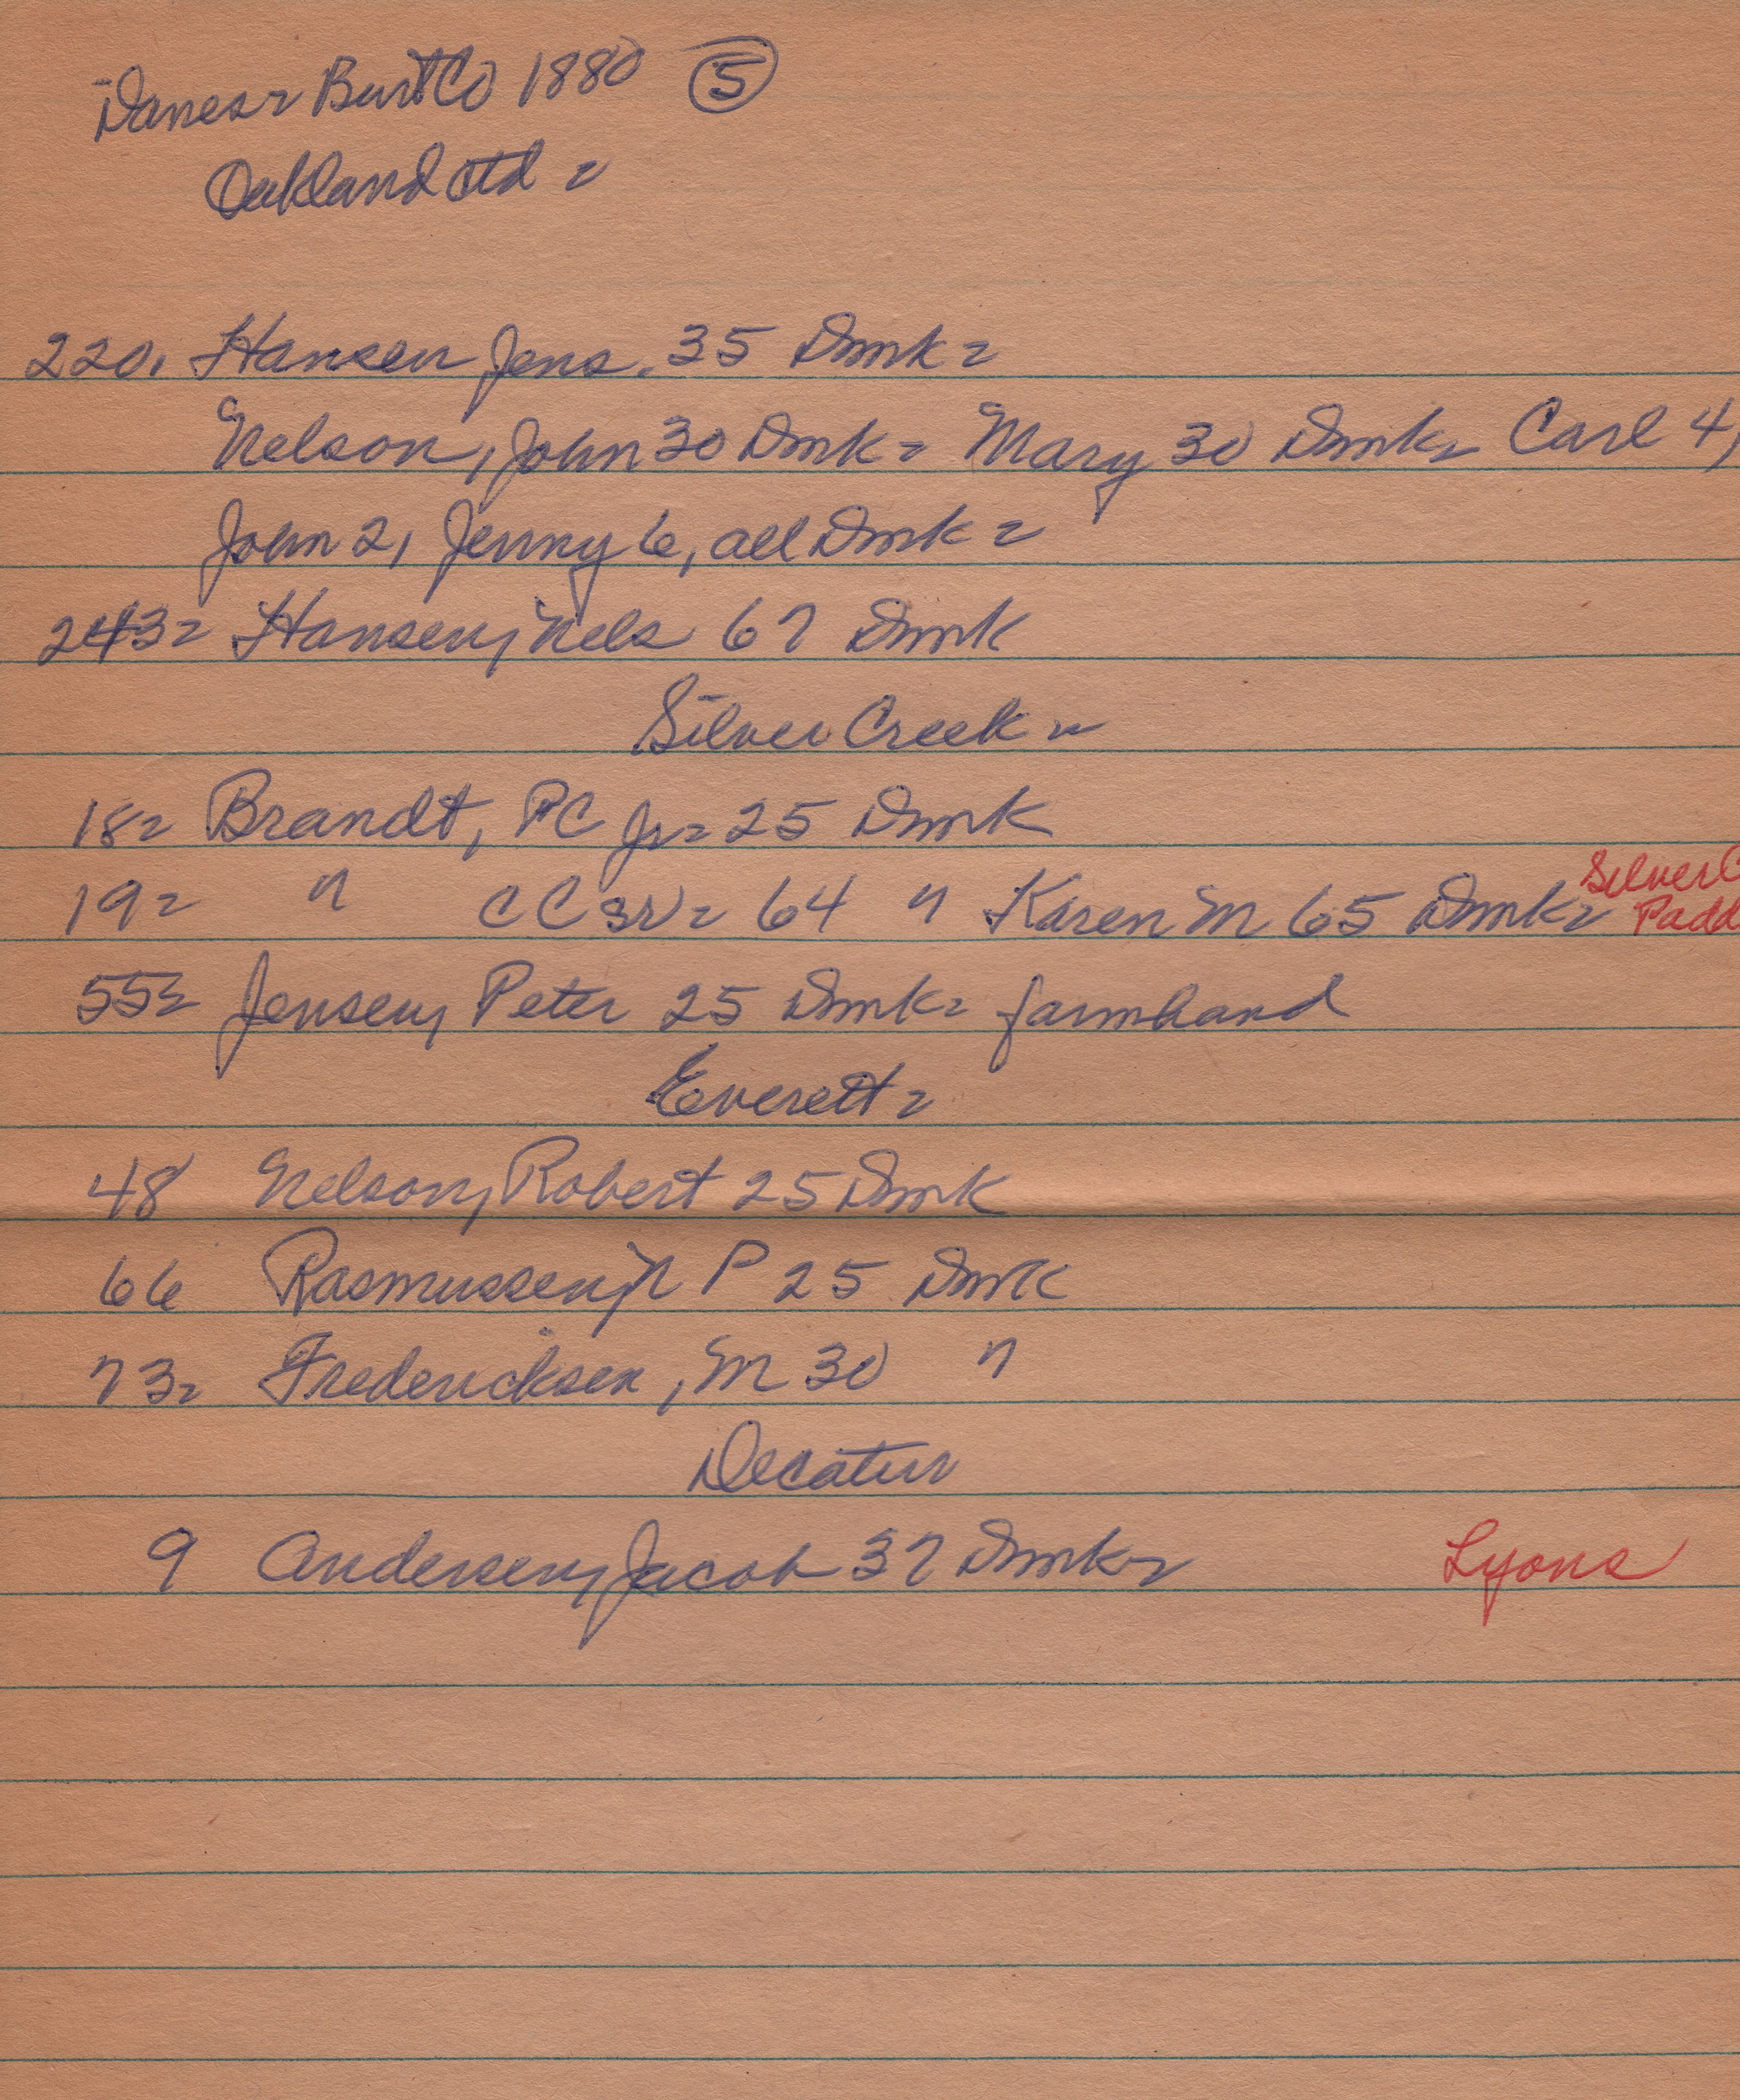 Danes - Burt Co 1880 (5)
Oakland ctd -
220. Hansen Jens. 35 Dmk -
Nelson, John 30 Dmk - Mary 30 Dmk - Carl 4,
John 2, Jenny 6, all Dmk -
243 - Hansen, Nels 67 Dmk
Silver Creek -
18 - Brandt, PC Jr - 25 Dmk
19 - " CC Sr - 64 " Karen M 65 Dmk - Silver C
Padd
55 - Jensen, Peter 25 Dmk - farmhand
Everett -
48 Nelson, Robert 25 Dmk
66 Rasmussen, N P 25 Dmk
73 - Fredericksen, M 30 "
Decatur
9 Andersen, Jacob 37 Dmk - Lyons